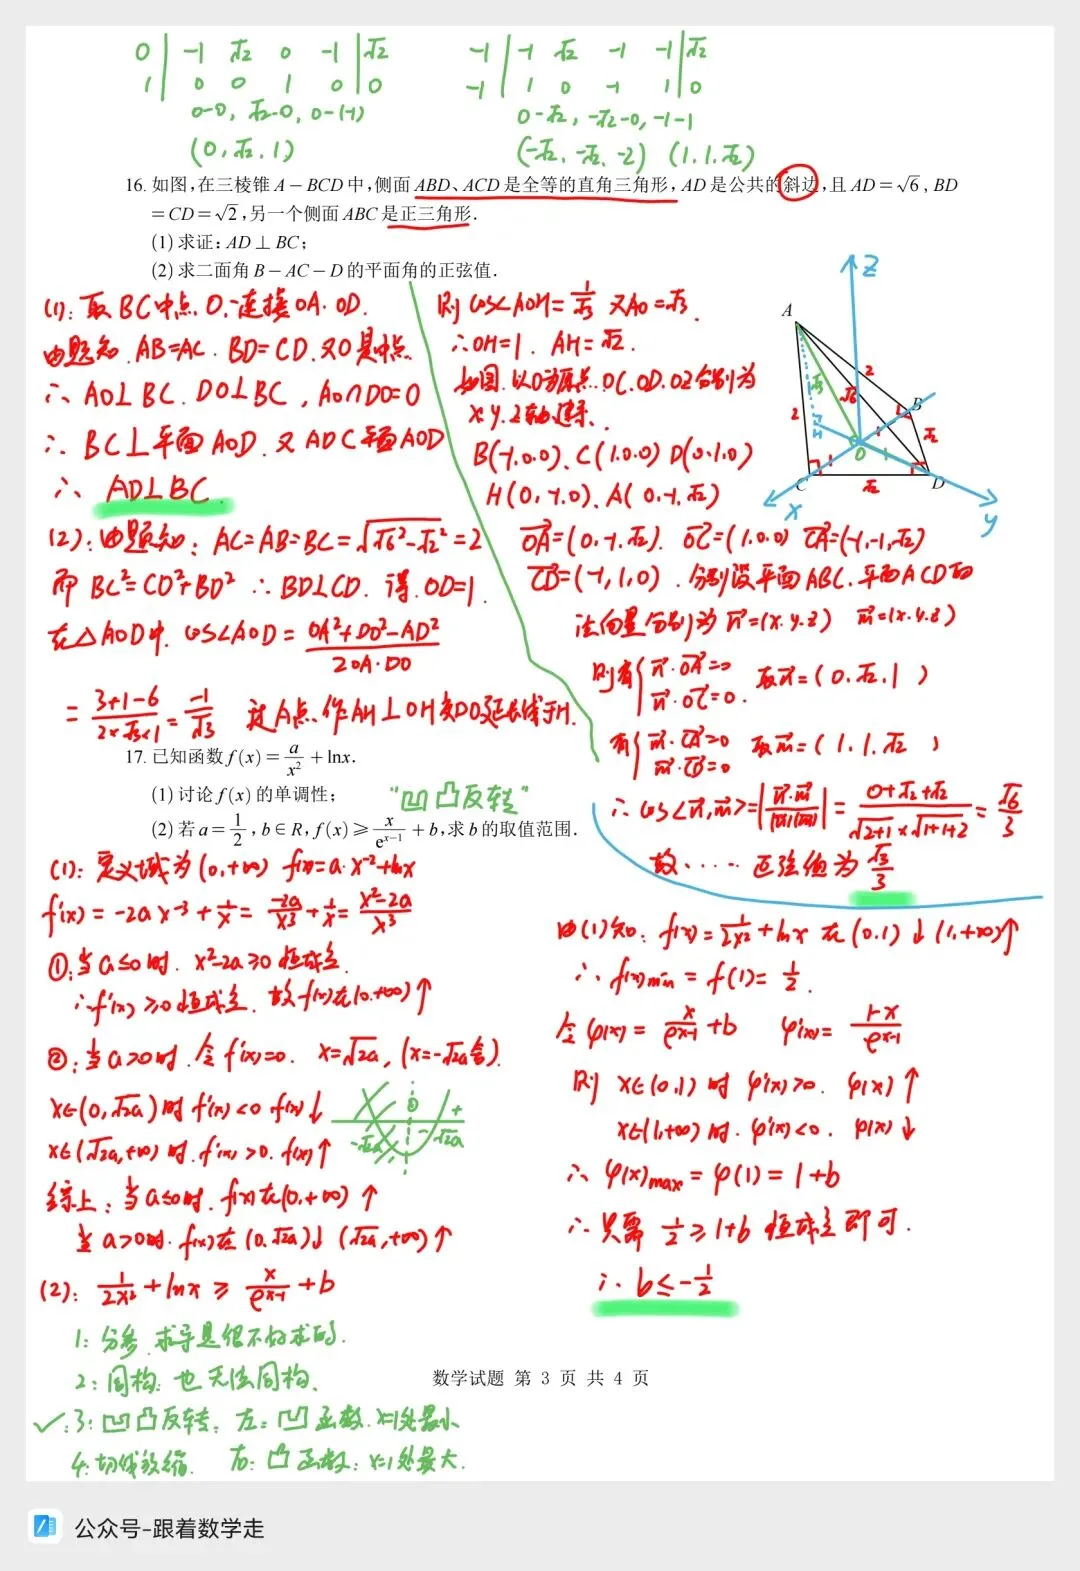 0 | -1 √2 0 -1 | √2
1 | 0 0 1 0 | 0
0-0, √2-0, 0-(-1)
(0, √2, 1)
-1 | -1 √2 -1 -1 | √2
-1 | 1 0 -1 1 | 0
0-√2, -√2-0, -1-1
(-√2, -√2, -2) (1, 1, √2)
16. 如图,在三棱锥 A-BCD 中,侧面 ABD、ACD 是全等的直角三角形,AD 是公共的斜边,且 AD=√6, BD
=CD=√2,另一个侧面 ABC 是正三角形.
(1)求证:AD⊥BC;
(2)求二面角 B-AC-D 的平面角的正弦值.
(1): 取BC中点O, 连接OA, OD.
由题知. AB=AC. BD=CD. 又O是中点.
∴ AO⊥BC. DO⊥BC, AO∩DO=O
∴ BC⊥平面AOD. 又AD⊂平面AOD
∴ AD⊥BC.
(2): 由题知: AC=AB=BC=√(√6²-√2²)=2
而 BC²=CD²+BD² ∴ BD⊥CD. 得 OD=1.
在△AOD中. cos∠AOD = (OA²+DO²-AD²)/(2OA·DO)
= (3+1-6)/(2×√3×1) = -1/√3 过A点作AH⊥OH交DO延长线于H.
则 cos∠AOH = 1/√3 又AO=√3.
∴OH=1. AH=√2.
如图. 以O为原点. OC. OD. OZ分别为
x y z轴建系.
B(-1.0.0). C(1.0.0) D(0.1.0)
H(0,-1.0). A(0.-1.√2)
OA=(0.-1.√2). OC=(1.0.0) CA=(-1,-1,√2)
CD=(-1,1,0). 分别设平面ABC. 平面ACD的
法向量分别为 n=(x.y.z) m=(x.y.z)
则有{ n·OA=0 n·OC=0. 取n=(0.√2.1)
有{ m·CA=0 m·CD=0 取m=(1.1.√2)
∴ cos<n,m>=|n·m/|n||m||=(0+√2+√2)/(√(2+1)×√(1+1+2))=√6/3
故····正弦值为 √3/3
A
B
C
D
O
H
x
y
Z
2
2
√3
√6
√2
√2
1
1
1
17. 已知函数 f(x)=a/x²+lnx.
(1)讨论 f(x)的单调性;
(2)若 a=1/2, b∈R, f(x)≥x/e^(x-1)+b,求 b 的取值范围.
“凹凸反转”
(1): 定义域为(0,+∞) f(x)=a·x⁻²+lnx
f'(x)=-2a x⁻³+1/x=-2a/x³+1/x=(x²-2a)/x³
①:当a≤0时. x²-2a≥0恒成立.
∴f'(x)≥0恒成立. 故f(x)在(0,+∞)↑
②:当a>0时. 令f'(x)=0. x=√2a, (x=-√2a舍).
x∈(0,√2a)时 f'(x)<0 f(x)↓
x∈(√2a,+∞)时. f'(x)>0. f(x)↑
-√2a
0
-
√2a
+
综上: 当a≤0时. f(x)在(0,+∞)↑
当a>0时. f(x)在(0.√2a)↓ (√2a,+∞)↑
(2): 1/2x²+lnx≥x/e^(x-1)+b
1: 分参. 求导是很不好求的.
2: 同构: 也无法同构.
✓3: 凹凸反转. 左: 凹函数. x=1处最小
4: 切线放缩. 右: 凸函数: x=1处最大.
由(1)知: f(x)=1/2x²+lnx 在(0.1)↓ (1,+∞)↑
∴ f(x)min=f(1)=1/2.
令φ(x)=x/e^(x-1)+b φ'(x)=(1-x)/e^(x-1)
则 x∈(0,1)时 φ'(x)>0. φ(x)↑
x∈(1,+∞)时. φ'(x)<0. φ(x)↓
∴ φ(x)max=φ(1)=1+b
∴ 只需 1/2≥1+b 恒成立即可.
∴ b≤-1/2
数学试题 第 3 页 共 4 页
公众号-跟着数学走